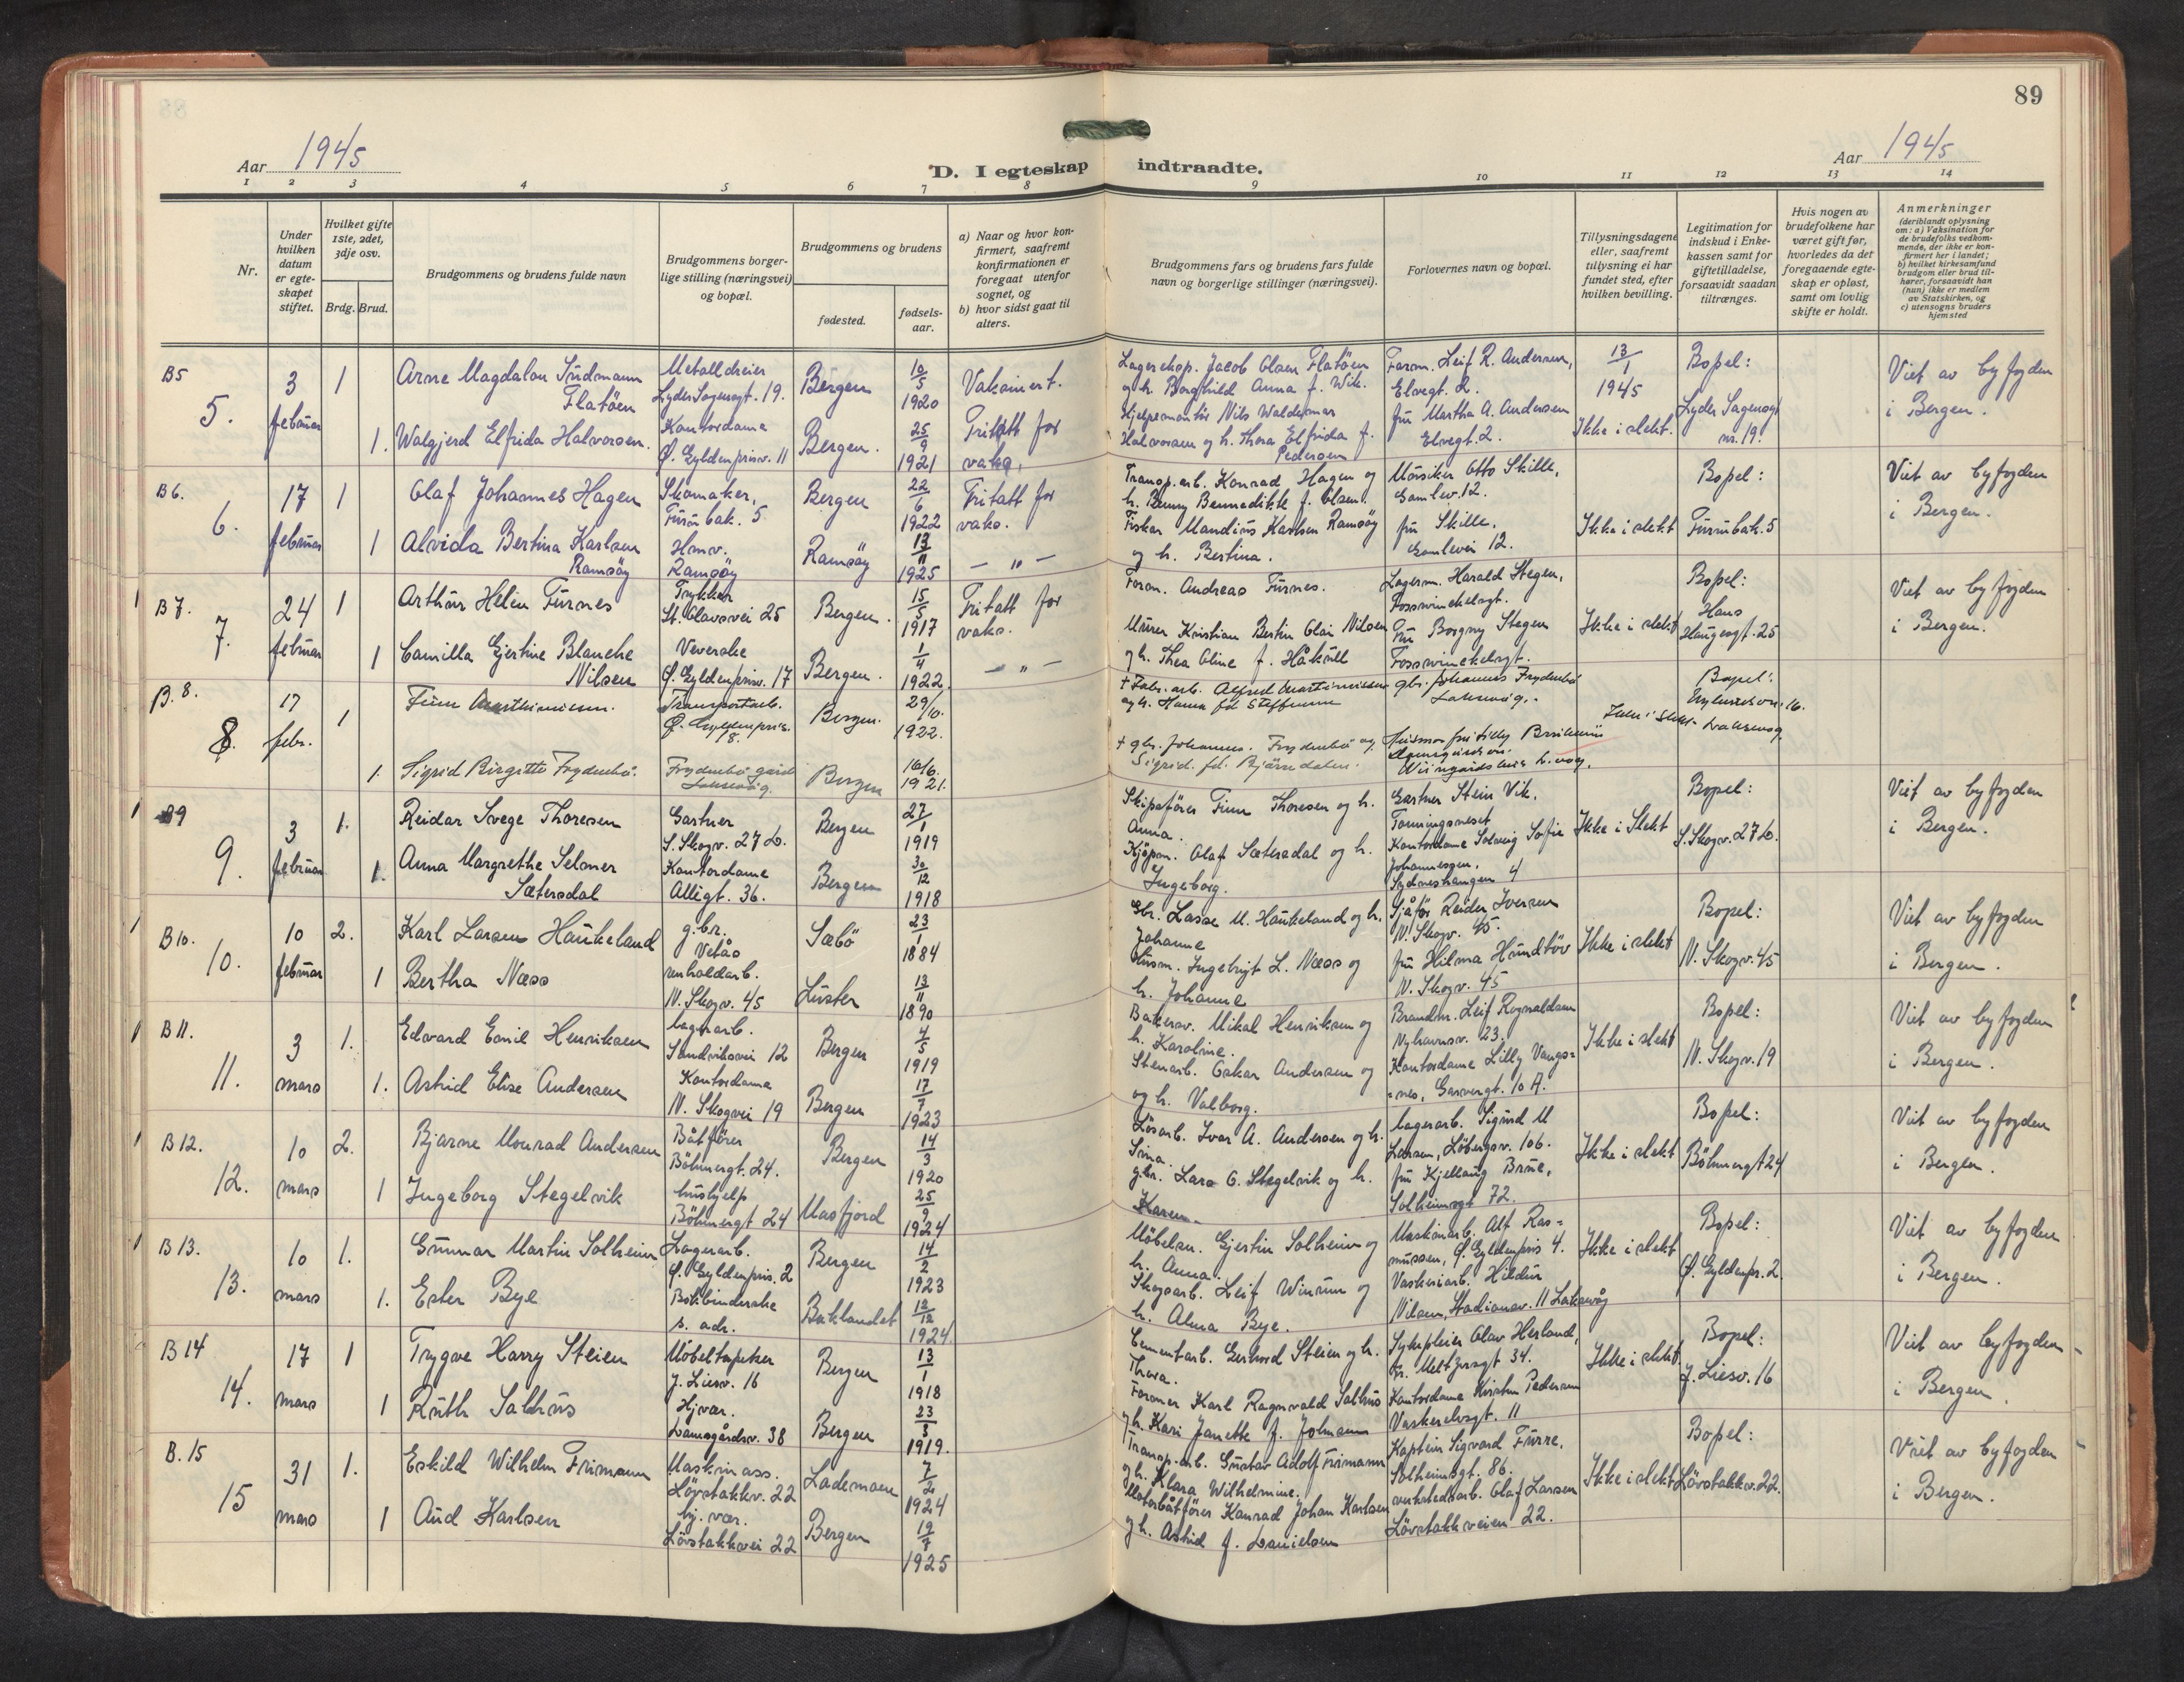 89
Aar 1945
D. I egteskap indtraadte.
Aar 1945
1 2 3 4 5 6 7 8 9 10 11 12 13 14
Nr.
Under hvilken datum er egteskapet stiftet.
Hvilket gifte 1ste, 2det, 3dje osv.
Brdg. Brud.
Brudgommens og brudens fulde navn
Brudgommens borgerlige stilling (næringsvei) og bopæl.
Brudgommens og brudens
fødested.
fødselsaar.
a) Naar og hvor konfirmert, saafremt konfirmationen er foregaat utenfor sognet, og
b) hvor sidst gaat til alters.
Brudgommens fars og brudens fars fulde navn og borgerlige stillinger (næringsvei).
Forlovernes navn og bopæl.
Tillysningsdagene eller, saafremt tillysning ei har fundet sted, efter hvilken bevilling.
Legitimation for indskud i Enkekassen samt for giftetilladelse, forsaavidt saadan tiltrænges.
Hvis nogen av brudefolkene har været gift før, hvorledes da det foregaaende egteskap er opløst, samt om lovlig skifte er holdt.
Anmerkninger
(deriblandt oplysning om: a) Vaksination for de brudefolks vedkommende, der ikke er konfirmert her i landet; b) hvilket kirkesamfund brudgom eller brud tilhører, forsaavidt han (hun) ikke er medlem av Statskirken, og c) utensogns bruders hjemsted
B5
5. 3 februar 1 Arne Magdalon Sudmann Flatøen Metalldreier Lyder Sagensgt. 19. Bergen 10/5 1920 Vaksinert.
Lagereksp. Jacob Olsen Flatöen og h. Borghild Anna f. Wik. Form. Leif R. Andersen, Elvegt. 2. 13/1 1945 Bopel: Lyder Sagensgt nr. 19. Viet av byfogden i Bergen.
1. Walgjerd Elfrida Halvorsen. Kontordame Ö. Gyldenprisv. 11 Bergen. 25/9 1921 Fritatt for vaks.
Hjelpemontör Nils Waldemar Halvorsen og h. Thora Elfrida f. Pedersen fru Martha A. Andersen Elvegt. 2. Ikke i slekt.
B6.
6. 17 februar 1 Olaf Johannes Hagen Skomaker, Furubak. 5 Bergen 22/6 1922 Fritatt for vaks.
Transp. arb. Konrad Hagen og h. Benny Bennedikte f. Olsen. Musiker Otto Skille, Gamlev. 12. Bopel: Furubak. 5 Viet av byfogden i Bergen.
1 Alvida Bertina Karlsen Ramsöy Hmv. Ramsöy Ramsöy 13/11 1925 — " —
Fisker Mandius Karlsen Ramsöy og h. Bertina. fru Skille, Gamlevei 12. Ikke i slekt
B7.
7. 24 februar 1 Arthur Helim Furnes Trykker St. Olavsvei 25 Bergen. 15/5 1917 Fritatt for vaks.
Form. Andreas Furnes. Lagerm. Harald Stegen, Fosswinckelsgt. Bopel: Hans Haugesgt. 25 Viet av byfogden i Bergen.
1 Camilla Gjertine Blanche Nilsen Veverske Ö. Gyldenprisv. 17 Bergen. 1/4 1922. — " —
Murer Kristian Bertin Olai Nilsen og h. Thea Oline f. Håkull Fru Borgny Stegen Fosswinckelsgt. Ikke i slekt
B. 8.
8. 17 febr. 1 Finn Martinussen. Transportarb. Ö. Gyldenpris. 18. Bergen. 29/10. 1922.
+ Fabr. arb. Alfred Martinussen og h. Hanna fd Steffensen gbr. Johannes Frydenbö Laksevåg. Bopel:
1. Sigrid Birgitte Frydenbö. Frydenbö gård Laksevåg. Bergen 16/6. 1921.
+ gbr. Johannes Frydenbö og Sigrid. fd. Bjørndalen. Ikke i slekt Laksevåg
B9
9. 3 februar 1. Reidar Svege Thoresen Gartner S. Skogv. 27 b. Bergen 27/1 1919
Skipsfører Finn Thoresen og h. Anna. Gartner Stein Vik. Bopel: S. Skogv. 27 b. Viet av byfogden i Bergen.
1. Anna Margrethe Selmer Sætersdal Kontordame Allégt. 36. Bergen 30/12 1918
Kjöpm. Olaf Sætersdal og h. Ingeborg. Kontordame Solveig Sofie Johannessen, Sydneshaugen 4 Ikke i Slekt
B10.
10. 10 februar 2. Karl Larsen Haukeland g.br. Vetås Sæbö 23/1 1884
Gbr. Lasse M. Haukeland og h. Johanne Sjåför Reidar Iversen N. Skogv. 45. Bopel: N. Skogv. 45 Viet av byfogden i Bergen.
1 Bertha Næss renholdarb. N. Skogv. 45 Luster 13/11 1890
Husm. Ingebrigt L. Næss og h. Johanne fru Hilma Hundtöv N. Skogv. 45 Ikke i slekt
B11.
11. 3 mars 1. Edvard Emil Henriksen lagerarb. Sandviksvei 12 Bergen 4/5 1919
Bakersv. Mikal Henriksen og h. Karoline. Brandm. Leif Rognaldsen Nyhavnsv. 23. Bopel: N. Skogv. 19 Viet av byfogden i Bergen.
1. Astrid Elise Andersen Kontordame N. Skogvei 19 Bergen 17/7 1923
Stenarb. Oskar Andersen og og h. Valborg. Kontordame Lilly Vangs=nes, Garvergt. 10 A. Ikke i slekt
B12.
12. 10 mars 2. Bjarne Monrad Andersen Båtförer Böhmergt. 24. Bergen 14/3 1920
Lösarb. Ivar A. Andersen og h. Sina. lagerarb. Sigurd M Larsen, Löbergsv. 106. Bopel: Böhmergt 24 Viet av byfogden i Bergen.
1 Ingeborg Stegelvik hushjelp Böhmergt 24 Masfjord 25/9 1924
g.br. Lars O. Stegelvik og h. Karen. fru Kjellaug Brue, Solheimsgt 72. Ikke i slekt
B13.
13. 10 mars 1. Gunnar Martin Solheim Lagerarb. Ö. Gyldenpris. 2 Bergen 14/2 1923
Möbelsn. Gjertin Solheim og h. Anna. Maskinarb. Alf Ras=mussen, Ö. Gyldenpris 4. Bopel: Ö. Gyldenpr. 2. Viet av byfogden i Bergen.
1. Ester Bye Bokbinderske s. adr. Baklandet 12/12 1924.
Skogsarb. Leif Winsrun og h. Alma Bye. Vaskeriarb. Hildur Nilsen, Stadionsv. 11 Laksevåg Ikke i slekt
B14
14. 17 mars 1 Trygve Harry Steien Möbeltapetser J. Liesv. 16 Bergen 13/1 1918
Cementarb. Gerhard Steien og h. Thora. Sykepleier Olav Hesland, Fr. Meltzersgt 34. Bopel: J. Liesv. 16 Viet av byfogden i Bergen.
1 Ruth Salhus Hjvær. Damsgårdsv. 38 Bergen 23/3 1919.
Formér Karl Ragnvald Salhus og h. Kari Janette f. Johnsen Kontordame Kirsten Pedersen Vaskerelvsgt. 11 Ikke i slekt
B. 15
15 31 mars 1. Eskild Wilhelm Frimann Maskinass. Lövstakkv. 22 Lademoen 7/2 1924
Transp. arb. Gustav Adolf Frimann og h. Klara Wilhelmine. Kaptein Sigvard Furre, Solheimsgt. 86. Bopel: Lövstakkv. 22. Viet av byfogden i Bergen.
1 Aud Karlsen hj. vær. Lövstakkvei 22 Bergen 19/7 1925
Motorbåtförer Konrad Johan Karlsen og h. Astrid f. Danielsen verkstedarb. Olaf Larsen Lövstakkveien 22. Ikke i slekt